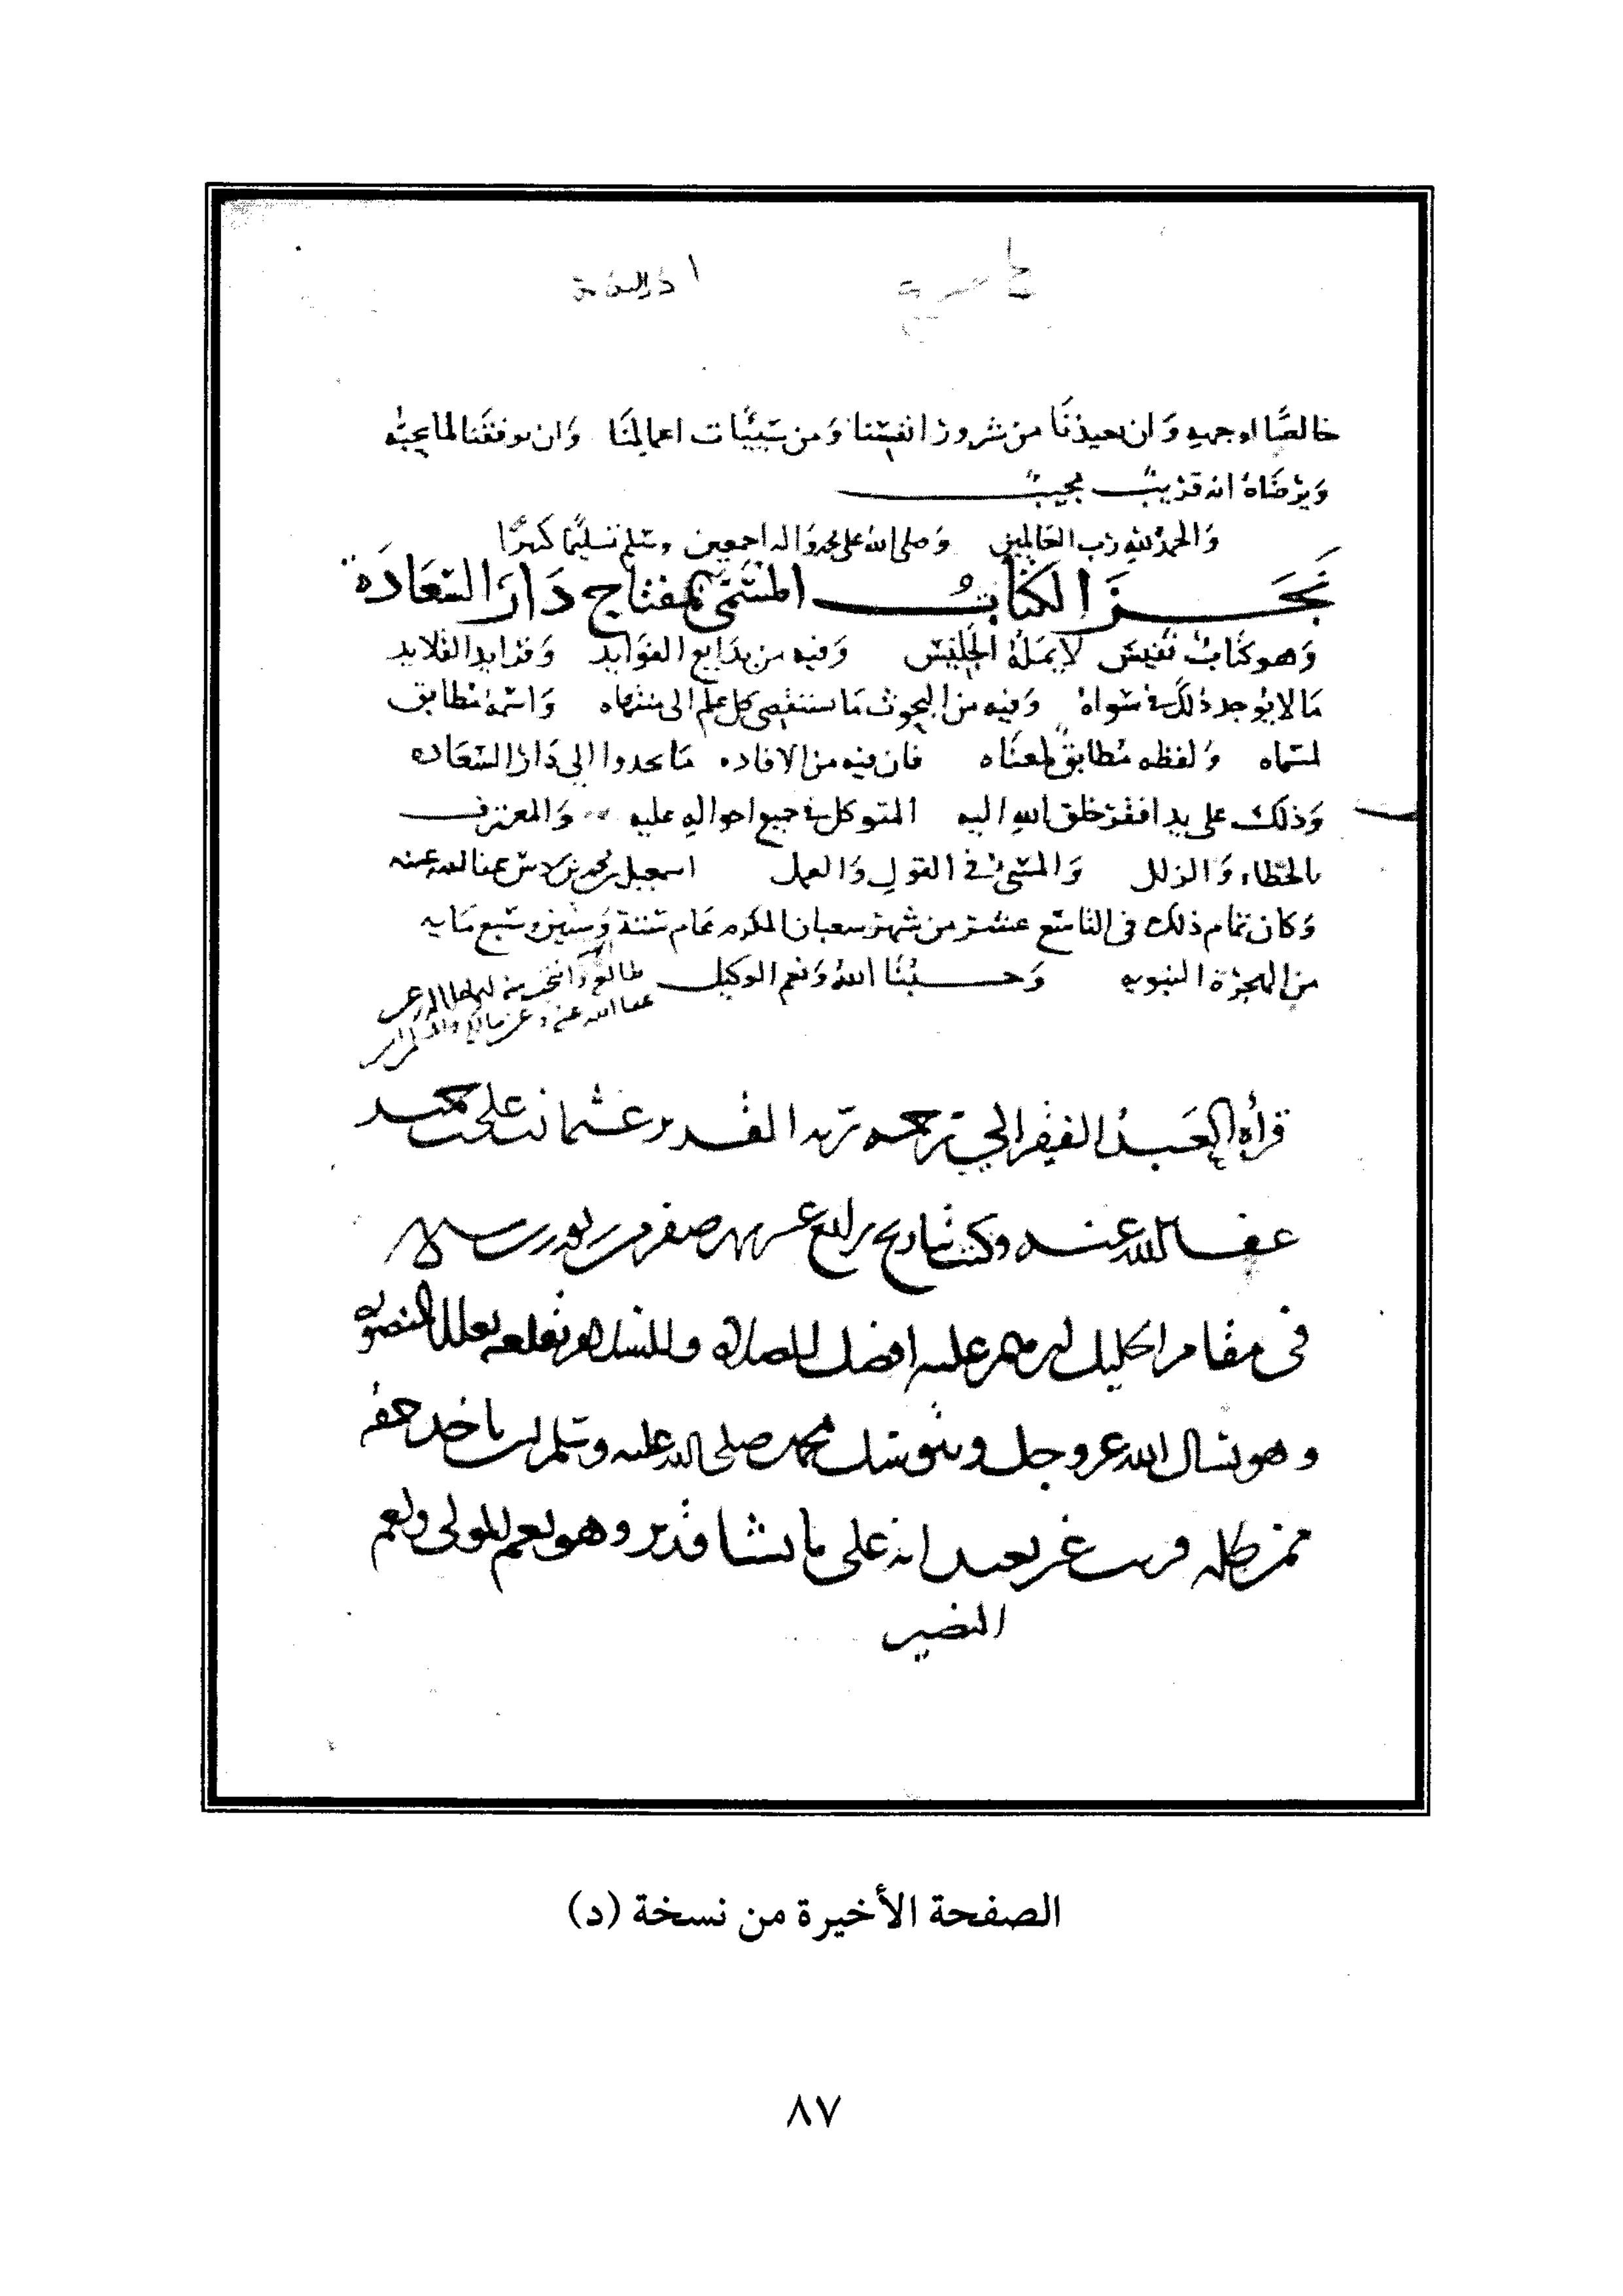 خالصًا لوجهه وَان يعيذنَا من شرور انفسنا وَمن سَيّئات اعمالنَا وَان يوفقَنا لما يحبّه
وَيرْضَاهُ انه قريبٌ مجيبٌ
وَالحمدُ للهِ رَبِ العَالمِين وَصلى الله على محمد وَاله اجمعين وسَلم تسليمًا كثيرًا
نَجَزَ الكتَابُ المسَمّى بمفتاح دَار السّعَادَه
وَهو كتابٌ نَفيسٌ لا يمَلّهُ الجَليْسُ وَفيه من بدَايع الفوَايد وَفرَايد القلايد
مَا لا يوجد ذلك في سوَاهُ وَفيه من البحوث مَا يستقصى كل علم الى منتهاه وَاسمهُ مطابق
لمسَمّاه وَلفظه مُطابقٌ لمعنَاه فان فيه من الافاده مَا يحدوا الى دَار السّعَاده
وَذلك على يد افقر خلق اللهِ اليه المتوكل في جميع احوالهِ عليه وَالمعترف
بالخَطاء وَالزلل وَالمسىُ في القولِ وَالعمل اسمعيل بن محمد بن بردس عفا الله عنه
وَكان تمام ذلك في التاسَع عشر من شهر شعبان المكرم عَام ستة وَستين وسَبع مَايه
من الهجرَة النبويه وَحسبُنَا اللهُ وَنعم الوكيل
طالع وانتخب منه
عفا الله عنه وعن
قرأه العَبدُ الفقير الى رحمه ربه القدير عثمان
عفا الله عنه وكتب بتاريخ رابع عشر شهر صفر من شهور سنه
فى مقام الخليل ابرهيم عليه افضل الصلاه والسلام بقلعه حلب المنصوره
وهو يسال الله عز وجل ويتوسل بمحمد صلى الله عليه وسَلم ان ياخد حقه
ممن ظلمه قريب غير بعيد انه على ما يشا قدير وهو نعم المولى ونعم
النصير
الصفحة الأخيرة من نسخة (د)
٨٧